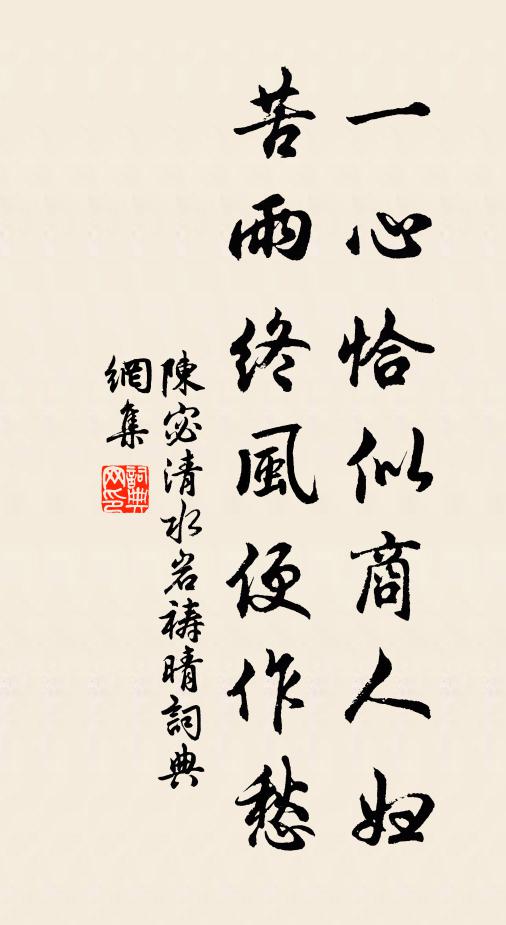 一心恰似商人妇
苦雨终風便作愁
陳宓清水岩禱晴詞典
網集
詞典
网印